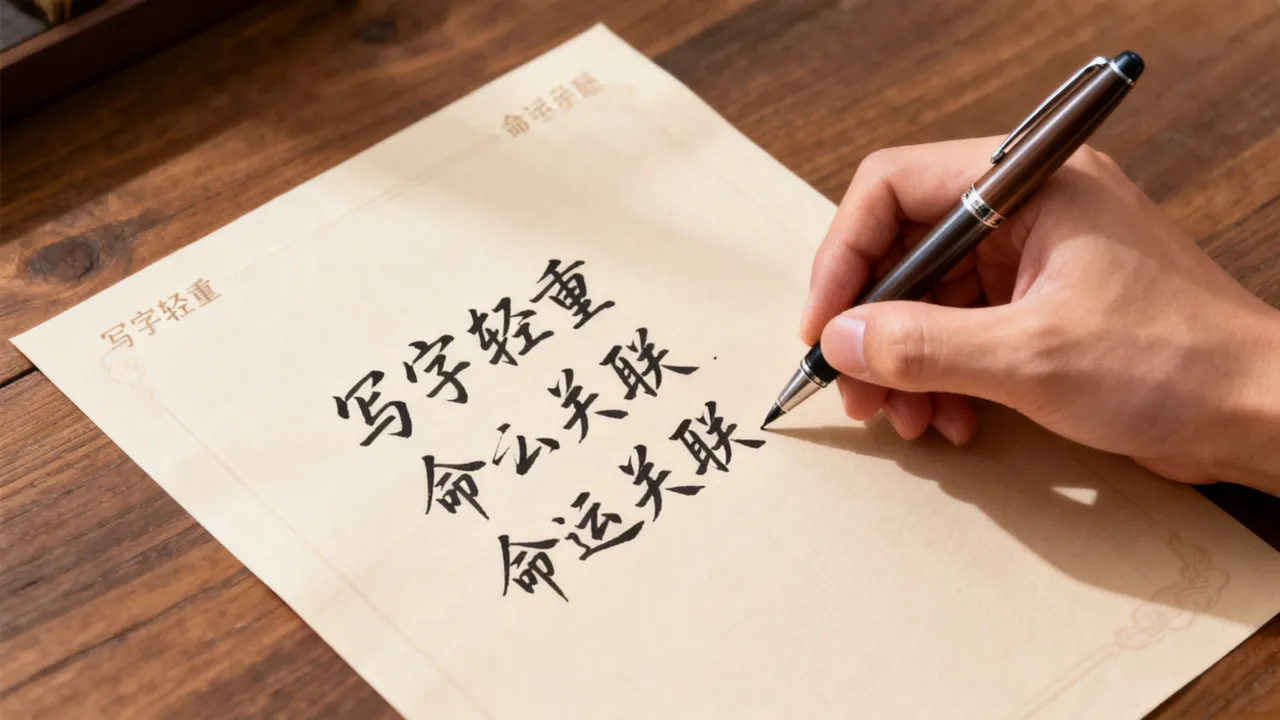 命运
写字轻重
写字轻重
命云关联
命运关联